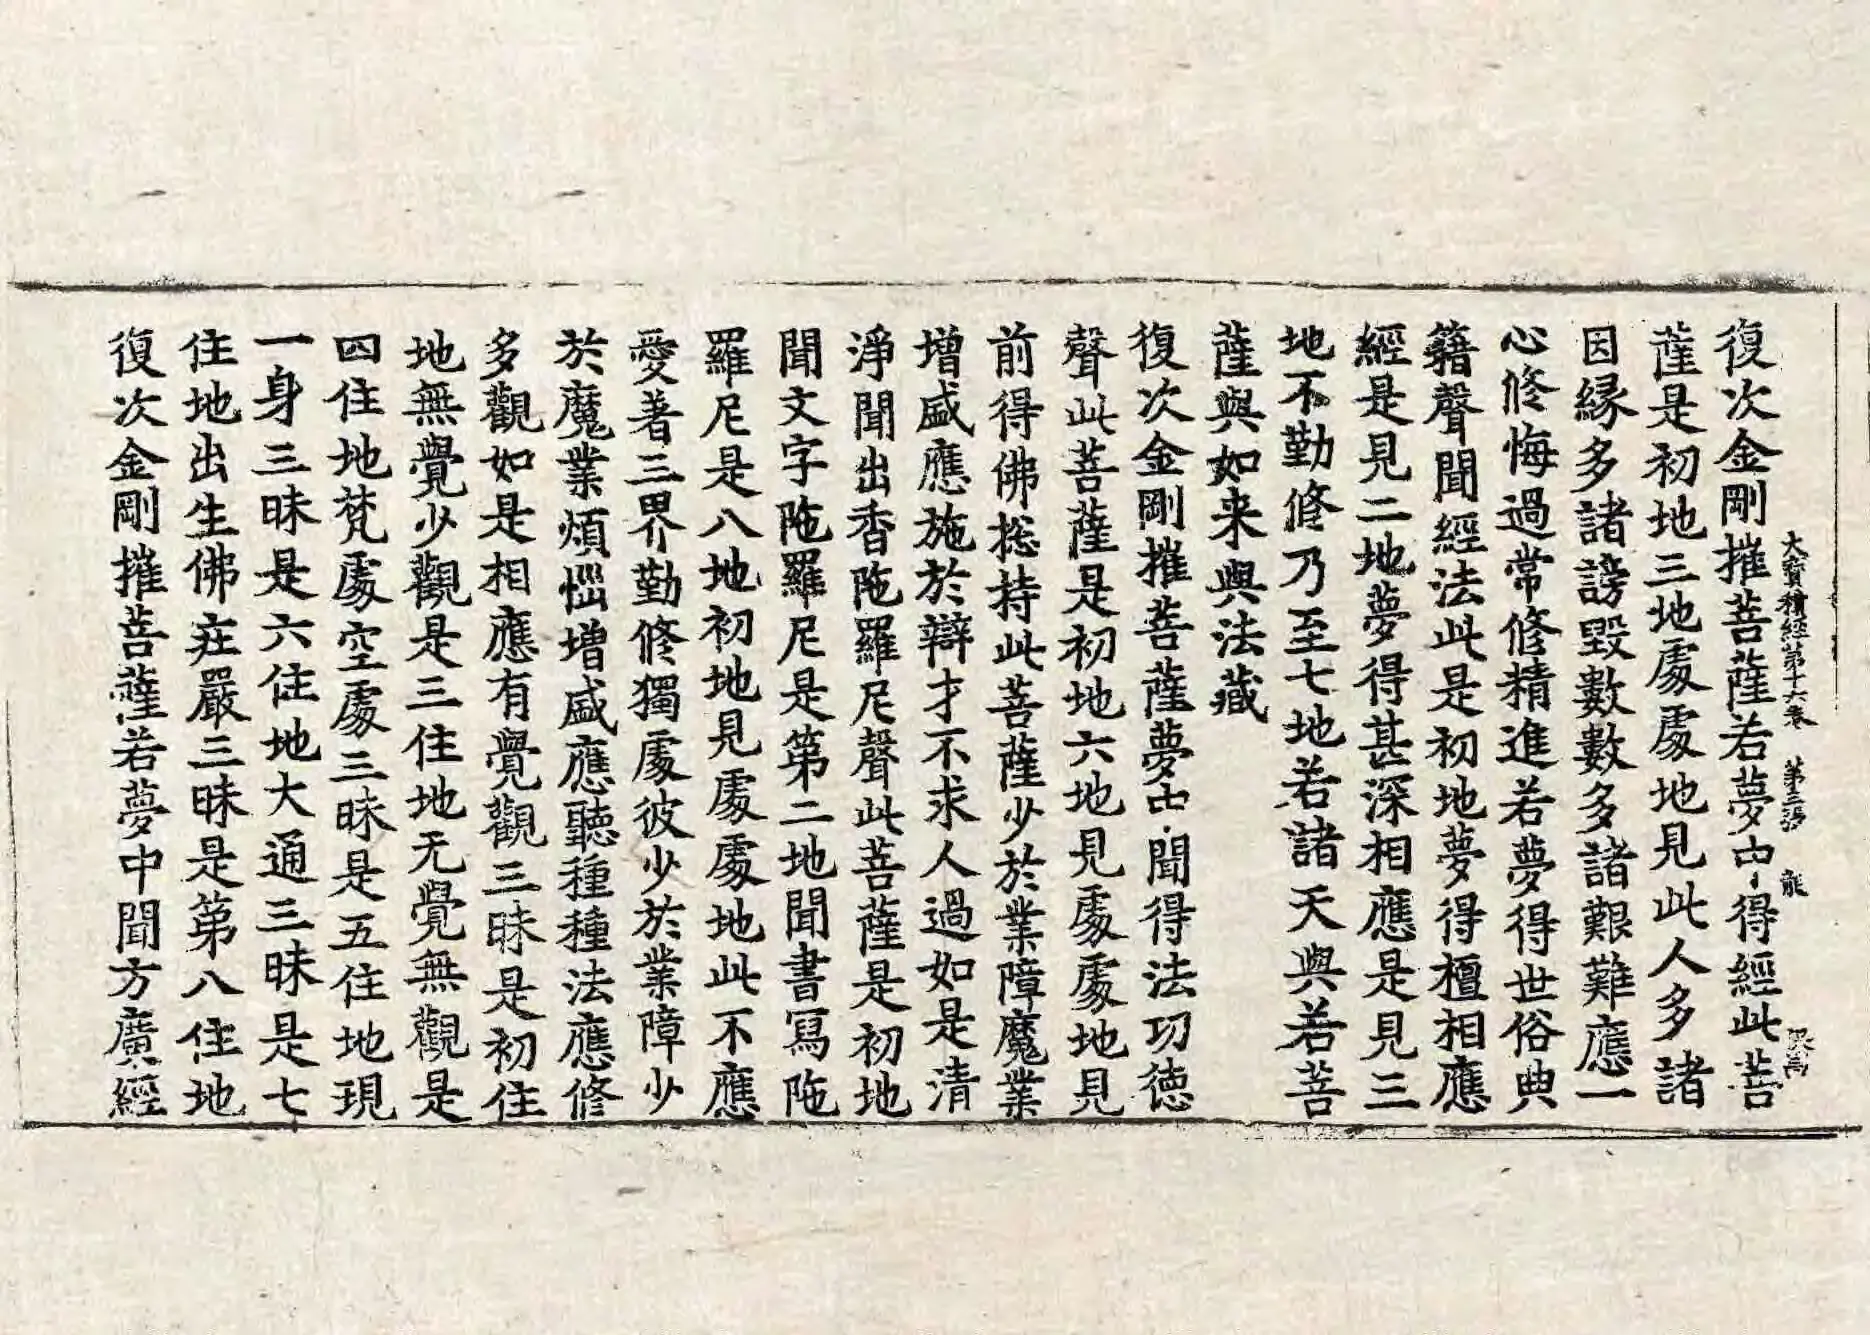 大寶積經第十六卷 第三張 龍
復次金剛摧菩薩若夢中得經此菩
薩是初地三地處處地見此人多諸
因縁多諸謗毀數數多諸艱難應一
心修悔過常修精進若夢得世俗典
籍聲聞經法此是初地夢得檀相應
經是見二地夢得甚深相應是見三
地不勤修乃至七地若諸天與若菩
薩與如来與法藏
復次金剛摧菩薩夢中聞得法功徳
聲此菩薩是初地六地見處處地見
前得佛捴持此菩薩少於業障魔業
增盛應施於辯才不求人過如是清
淨聞出香陁羅尼聲此菩薩是初地
聞文字陁羅尼是第二地聞書寫陁
羅尼是八地初地見處處地此不應
愛著三界勤修獨處彼少於業障少
於魔業煩惱增盛應聽種種法應修
多觀如是相應有覺觀三昧是初住
地無覺少觀是三住地无覺無觀是
四住地梵處空處三昧是五住地現
一身三昧是六住地大通三昧是七
住地出生佛莊嚴三昧是第八住地
復次金剛摧菩薩若夢中聞方廣經